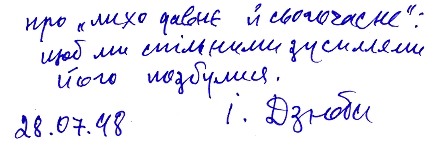 про „лихо давнє й сьогочасне“:
щоб ми спільними зусиллями
його позбулися.
28.07.98 І. Дзюба